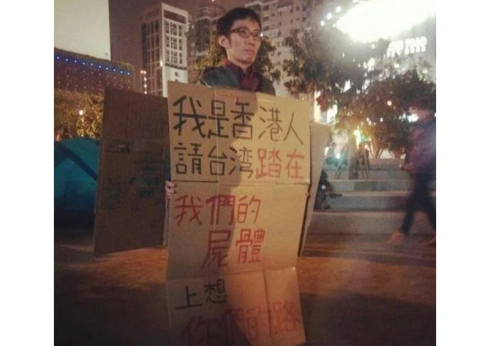 我是香港人
請台湾踏在
我們的
屍體
上想
你們的路